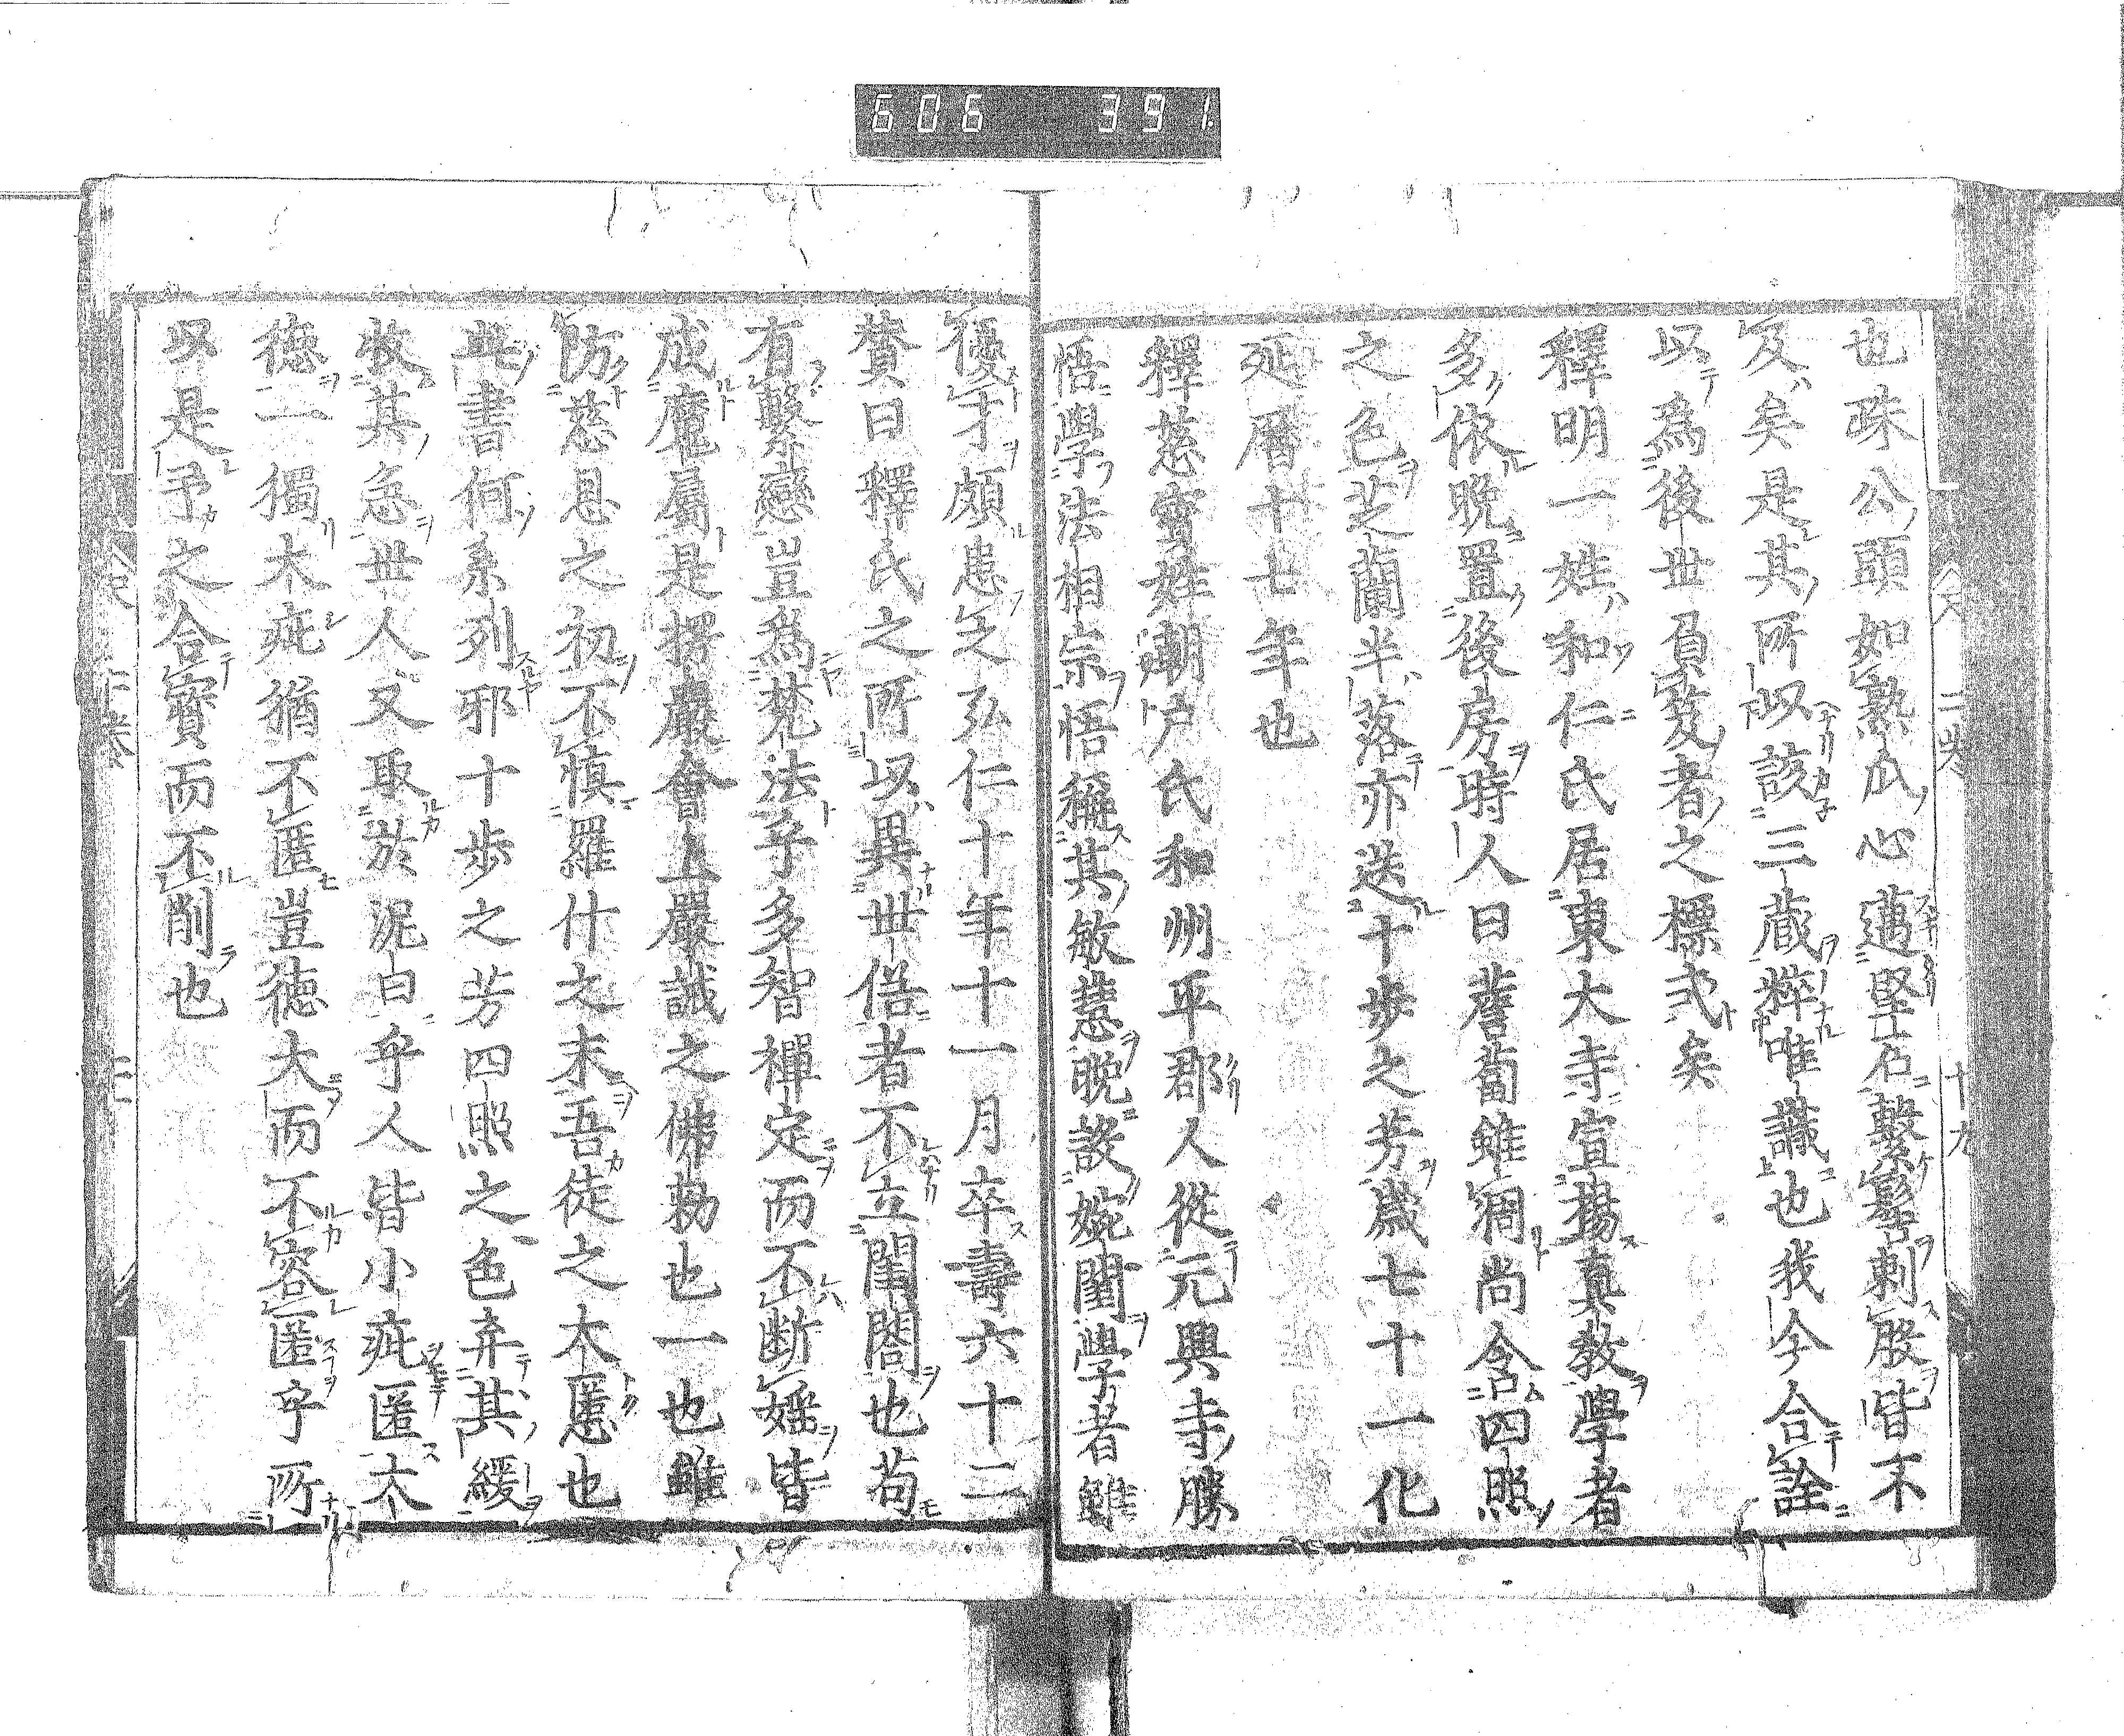 606 391
也昧公頭如熟瓜心邁堅石繫髻刺股皆不
及矣是其所以該三藏粹唯識也我今合詮
以爲後世負笈者之標弐矣
釋明一姓和仁氏居東大寺宣揚真教學者
多依晩置後房時人曰薝蔔雖凋尚含四照
之色芝蘭半落亦送十歩之芳歳七十一化
延暦十七年也
釋慈寳姓潮戸氏和州平郡人從元興寺勝
悟學法相宗悟稱其敏慧晩設婉閫學者雖
優才頗患乏弘仁十年十一月卒壽六十二
賛曰釋氏之所以異世倍者不立閨閤也苟
有繫戀豈爲梵法乎多智禪定而不断婬皆
成魔屬是楞嚴會上嚴誡之佛勅也一也雖
防慈恩之初不慎羅什之末吾徒之大慝也
此書何系列邪十歩之芳四照之色弃其緩
救其急世人又取於泥曰乎人皆小疵匿大
徳一獨大疵猶不匿豈徳大而不容匿乎所
以是予之合寳而不削也